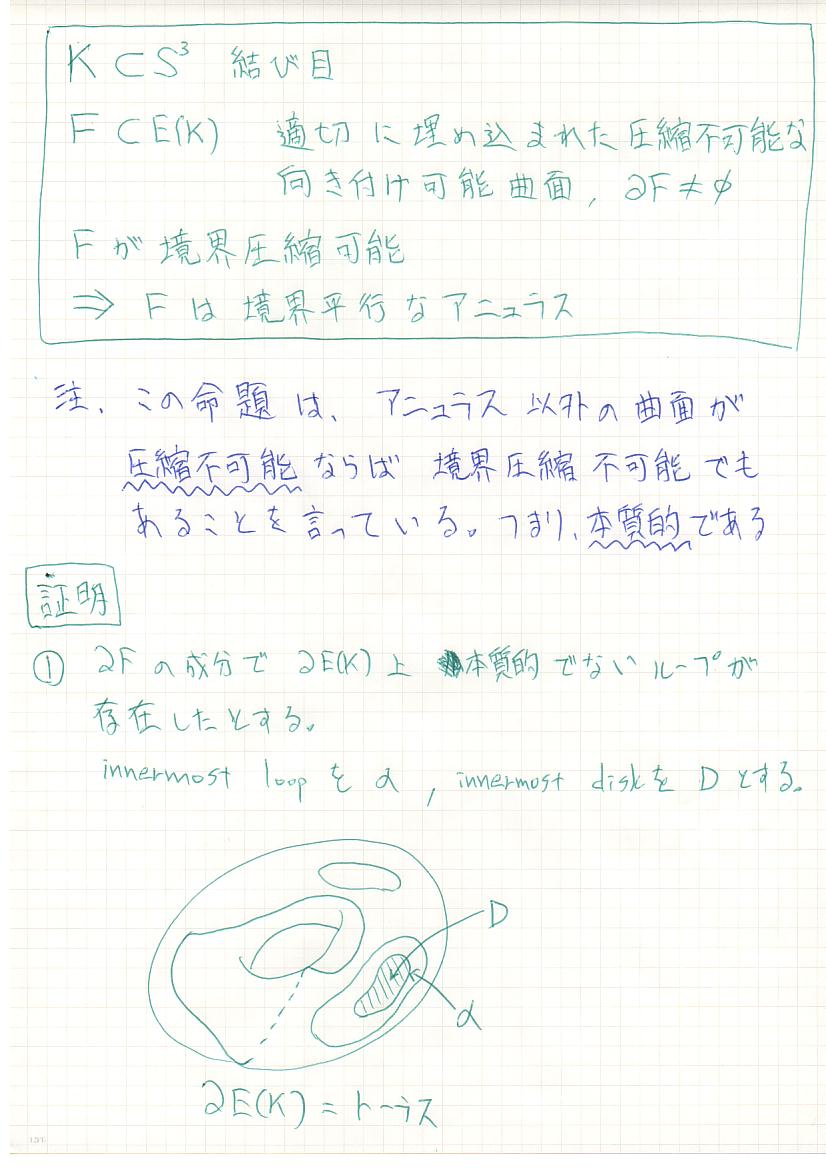 K ⊂ S³ 結び目
F ⊂ E(K) 適切に埋め込まれた圧縮不可能な
向き付け可能曲面, ∂F ≠ φ
F が 境界圧縮可能
⇒ F は 境界平行な アニュラス
注. この命題は、アニュラス以外の曲面が
圧縮不可能ならば 境界圧縮不可能でも
あることを言っている。つまり、本質的である
証明
① ∂F の成分で ∂E(K) 上 本質的でないループが
存在したとする。
innermost loop を α, innermost disk を D とする。
D
α
∂E(K) = トーラス